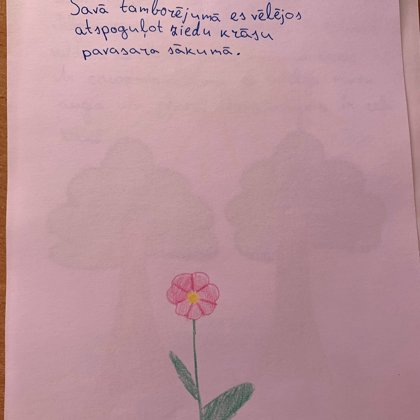 Savā tamborējumā es vēlējos
atspoguļot ziedu krāsu
pavasara sākumā.